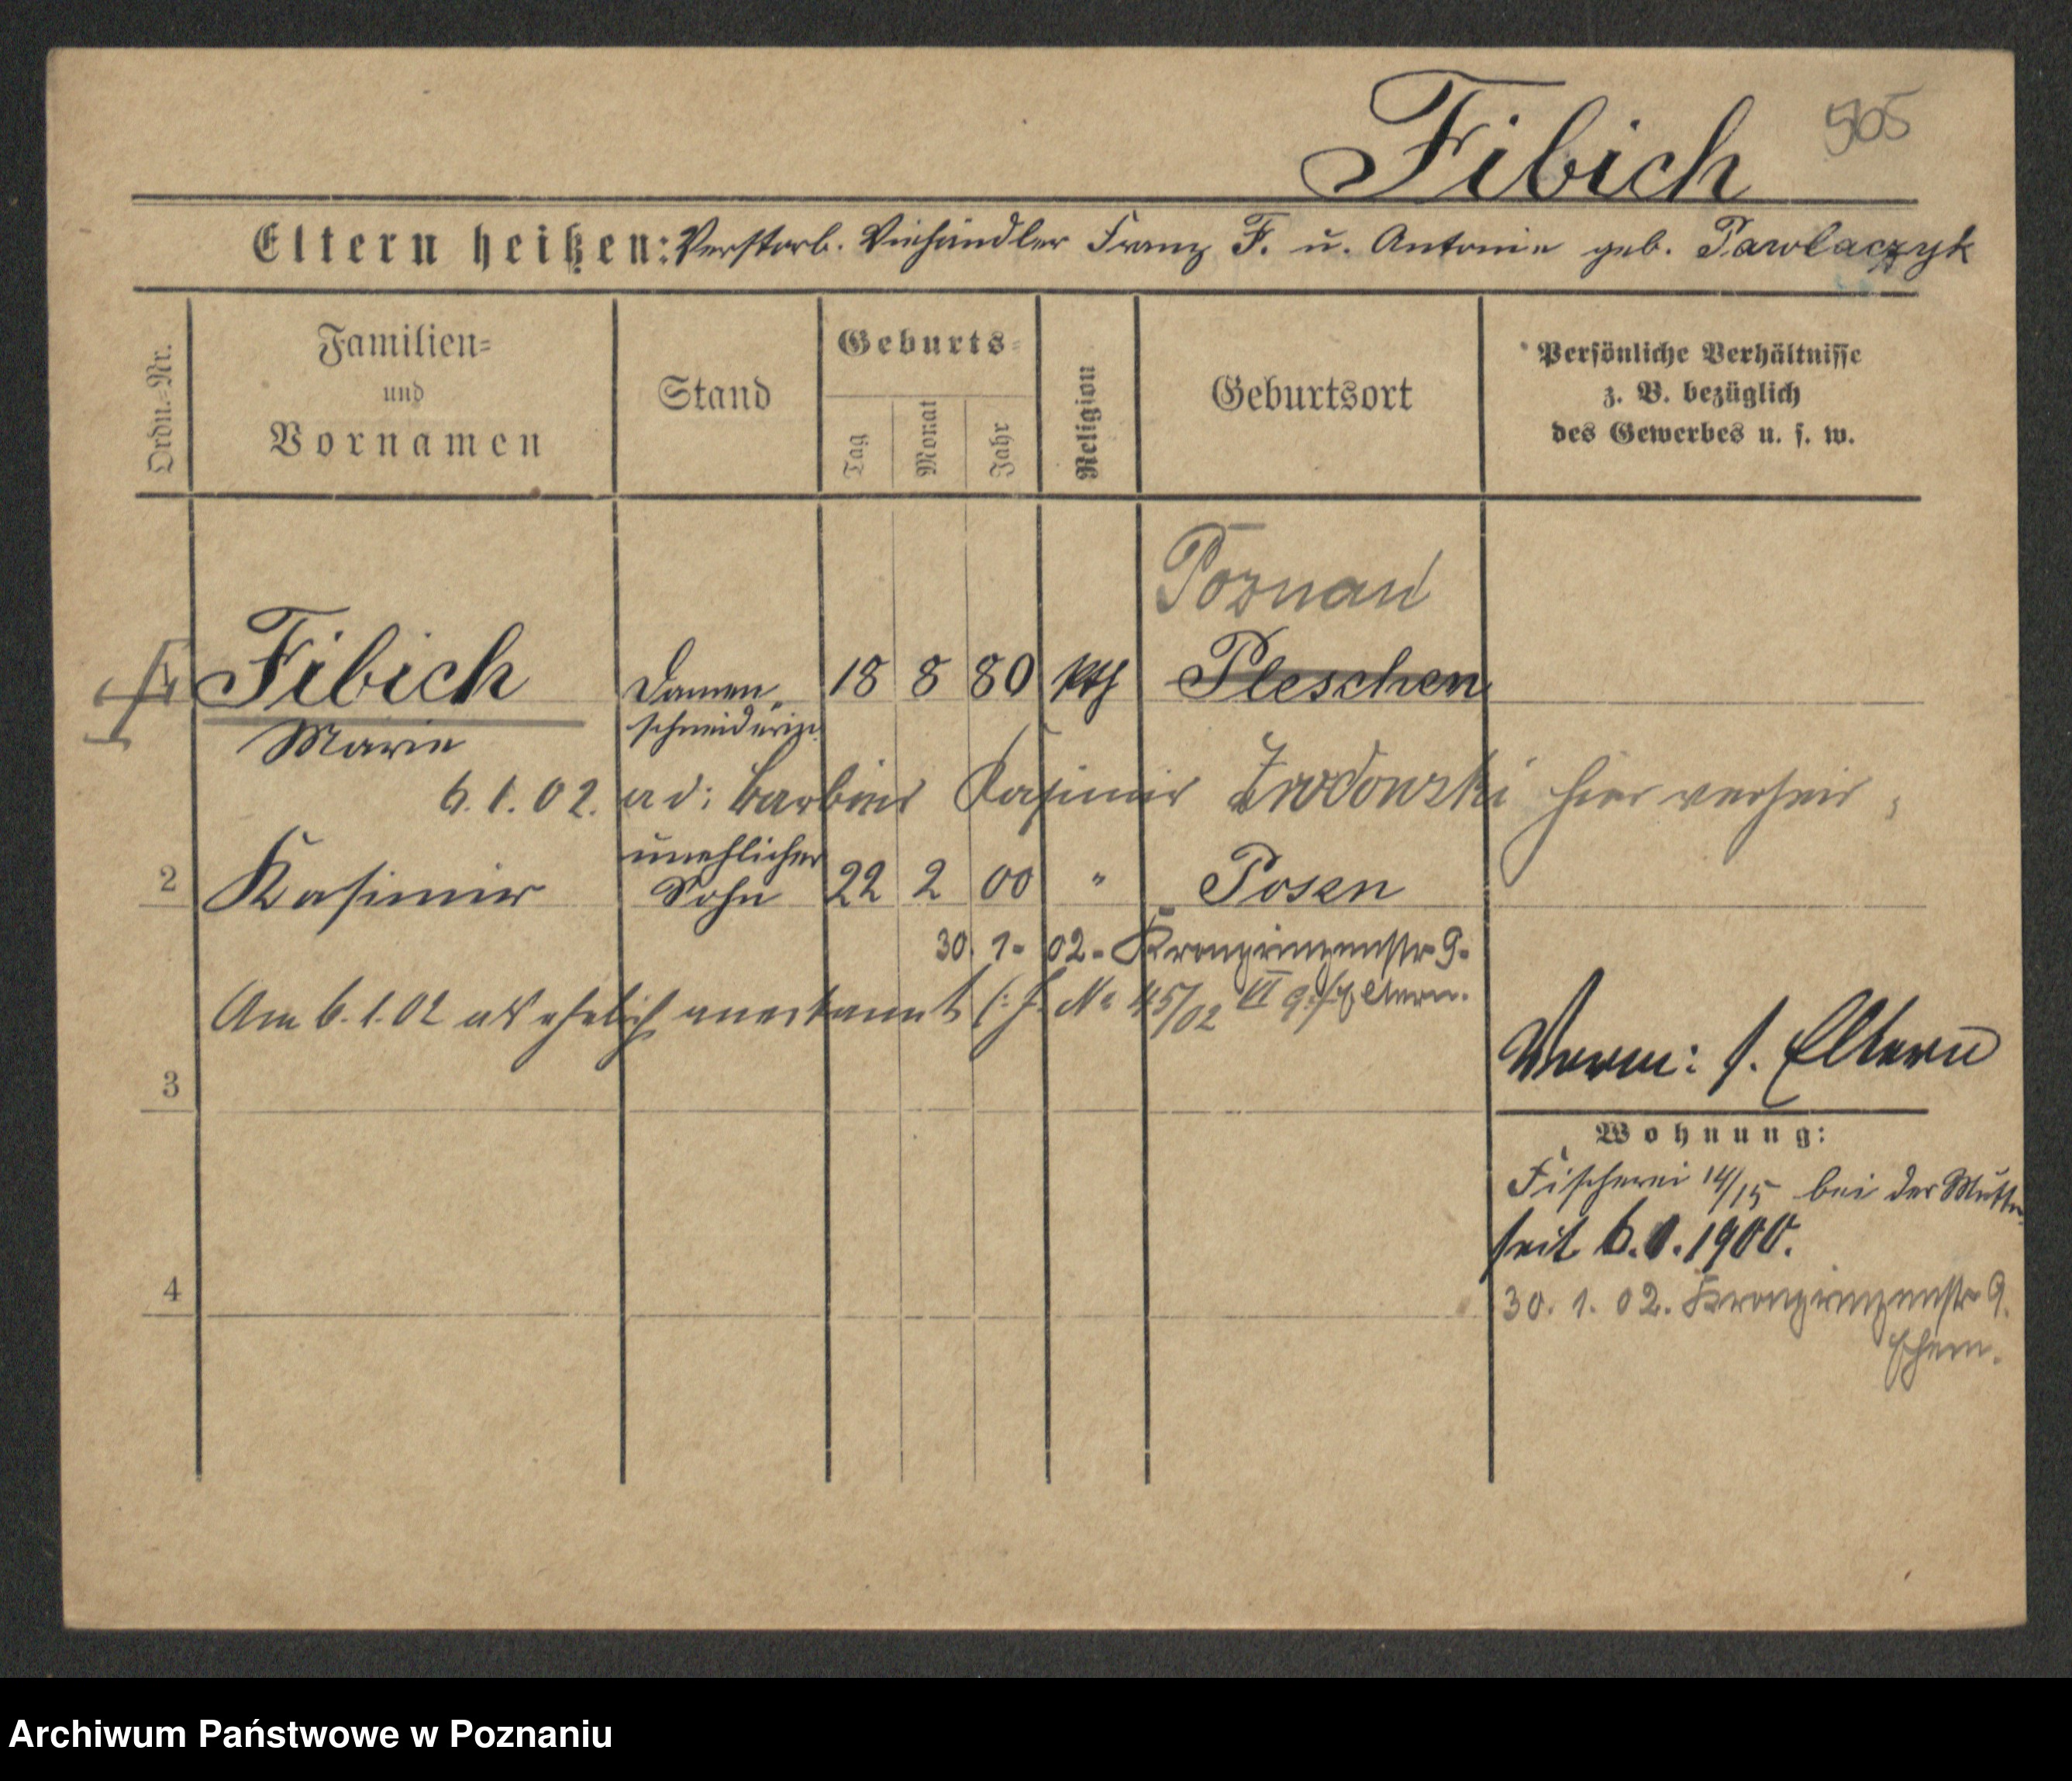 Fibich 505
Eltern heißen: Verstorb. Viehändler Franz F. u. Antonie geb. Pawlaczyk
Ordn.-Nr.
Familien-
und
Vornamen
Stand
Geburts-
Tag
Monat
Jahr
Religion
Geburtsort
Persönliche Verhältnisse
z. B. bezüglich
des Gewerbes u. s. w.
Poznań
Fibich Damen 18 8 80 kth Pleschen
Marie schneiderin
6.1.02. Barbier Kasimir hier verheir.
2 Kasimir unehlicher Sohn 22 2 00 " Posen
30. 1. 02. Kronprinzenstr 9.
Am 6.1.02 als ehelich anerkannt (: J. No 45/02 VI Eltern.
3
Verm: s. Eltern
Wohnung:
Fischerei 14/15 bei der Mutter
seit 1900.
4
30. 1. 02. Kronprinzenstr 9.